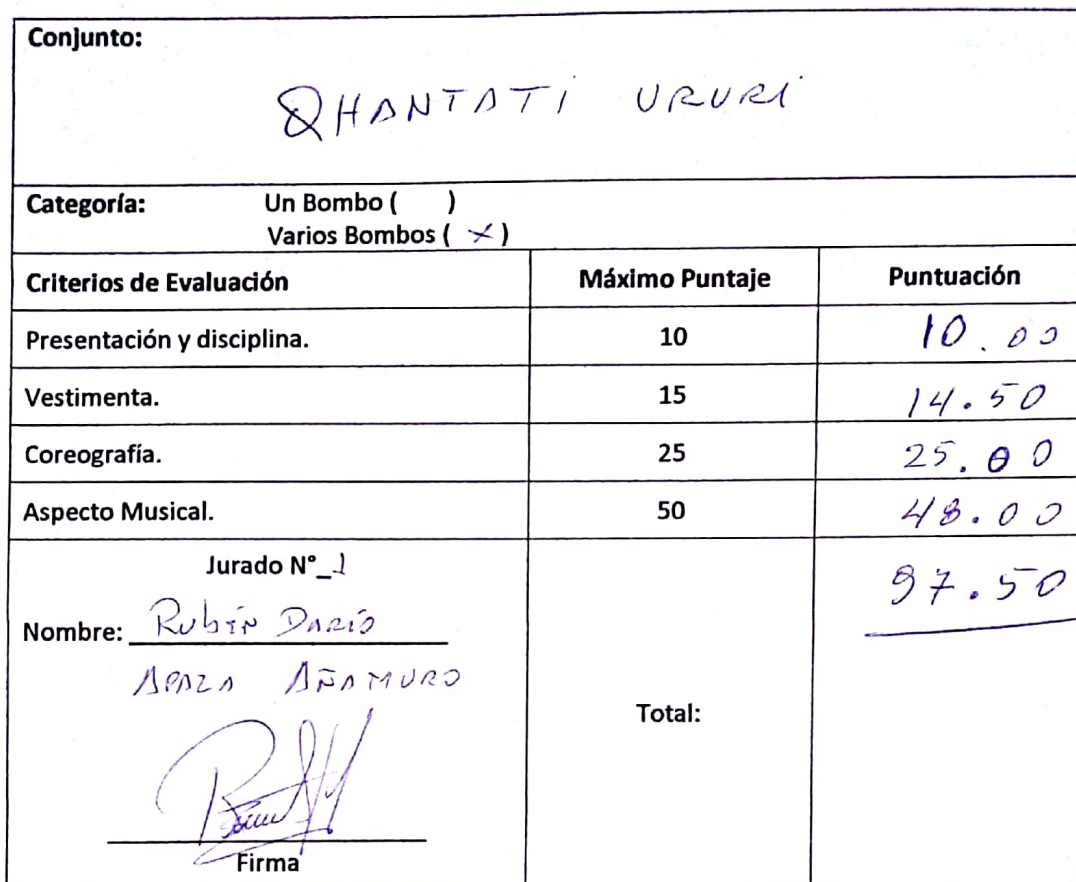 Conjunto:
QHANTATI URURI
Categoría: Un Bombo ( )
Varios Bombos ( × )
Criterios de Evaluación Máximo Puntaje Puntuación
Presentación y disciplina. 10 10.00
Vestimenta. 15 14.50
Coreografía. 25 25.00
Aspecto Musical. 50 48.00
Jurado N°_1 97.50
Nombre: RUBÉN DARÍO
APAZA AÑAMURO
Total:
Firma